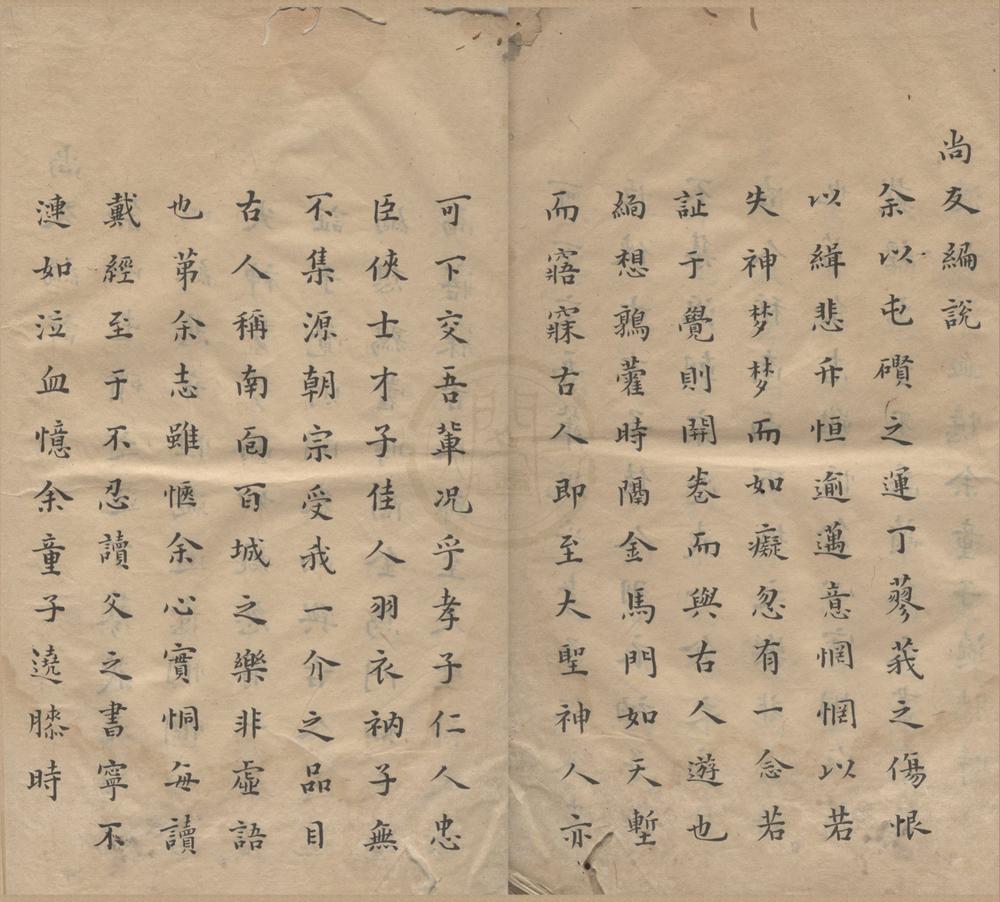 尚友編說
余以屯礩之運丁蓼莪之傷恨
以緝悲弁恒逾邁意惘惘以若
失神梦梦而如癡忽有一念若
証于覺則開卷而與古人遊也
緬想鶉藿時隔金馬門如天塹
而寤寐古人即至大聖神人亦
可下交吾輩况乎孝子仁人忠
臣俠士才子佳人羽衣衲子無
不集源朝宗受我一介之品目
古人稱南面百城之樂非虛語
也第余志雖愜余心實恫每讀
戴經至于不忍讀父之書寧不
漣如泣血憶余童子遶膝時